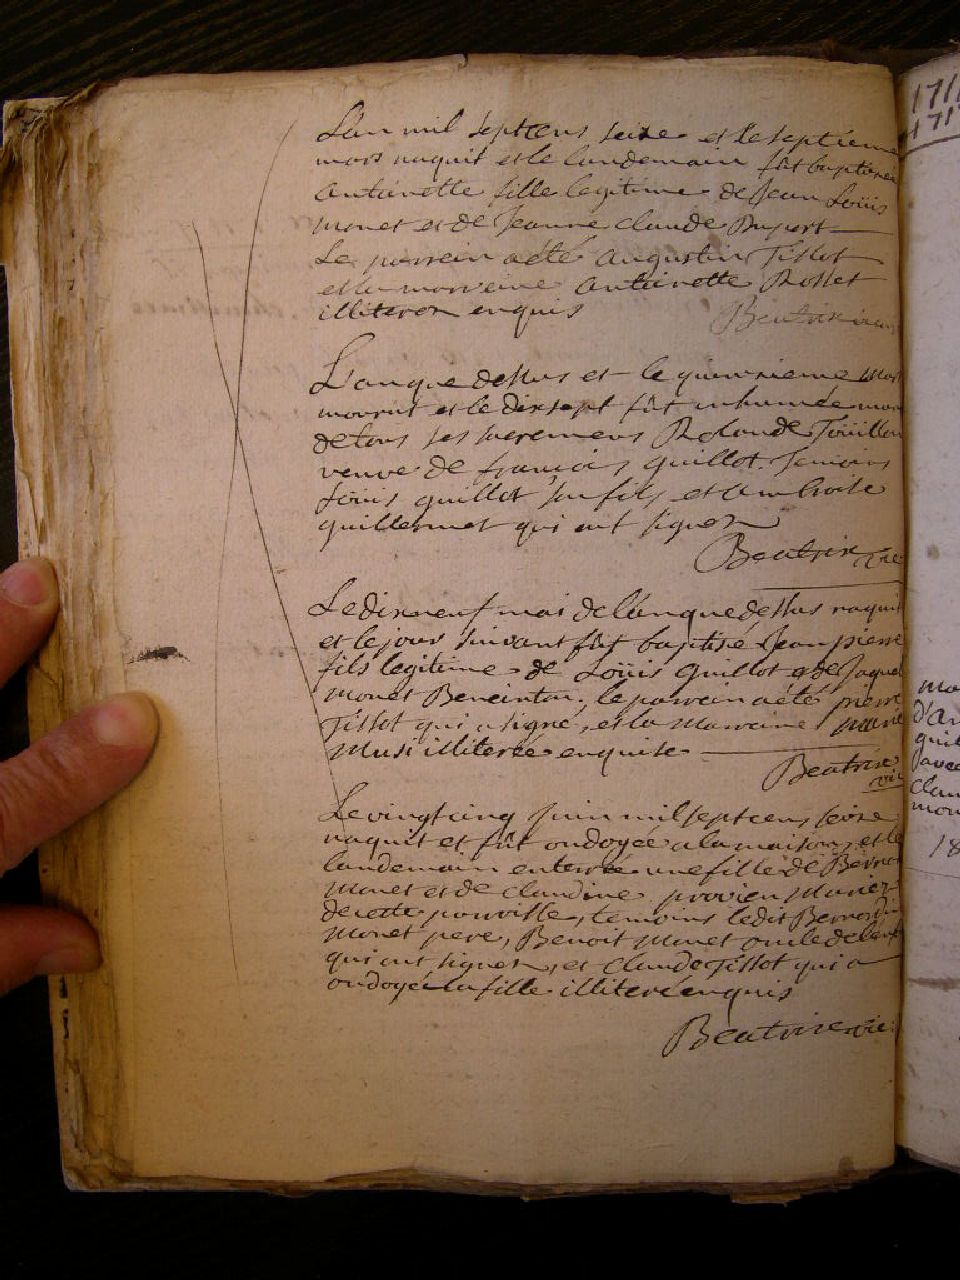 L'an mil septcens seize et le septieme
mars naquit et le landemain fût baptisée
antoinette fille legitime de Jean Loüis
monet et de Jeanne claude Dupert
Le parrein a été augustin Tissot
et la marreine antoinette Rosset
illiterez enquis
Beatrix vicr
L'an que dessus et le quinzieme mars
mourut et le dixsept fût inhumée munie
de tous ses sacremens Rolande Toüillon
veuve de françois guillot. Temoins
Loüis guillot son fils, et ambroise
guillermet qui ont signez
Beatrix vic
Le dixneuf mai de l'an que dessus naquit
et le jour suivant fût baptisé Jean pierre
fils legitime de Loüis Guillot et de Jaque
monet Beneinton; le parrein a été pierre
Tissot qui a signé, et la marraine marie
musi illiterée enquise
Beatrix
vic
Le vingt cinq juin mil sept cens seize
naquit et fût ondoyée a la maison, et le
landemain enterrée une fille de Bernar
monet et de claudine mariez
de cette parroisse, temoins ledit Bernardin
monet pere, Benoit monet oncle de l'enft
qui ont signez, et claude Tissot qui a
ondoyé la fille illiteré enquis
Beatrix vic:
1716
171
mo
d'an
guil
avec
clau
mon
18